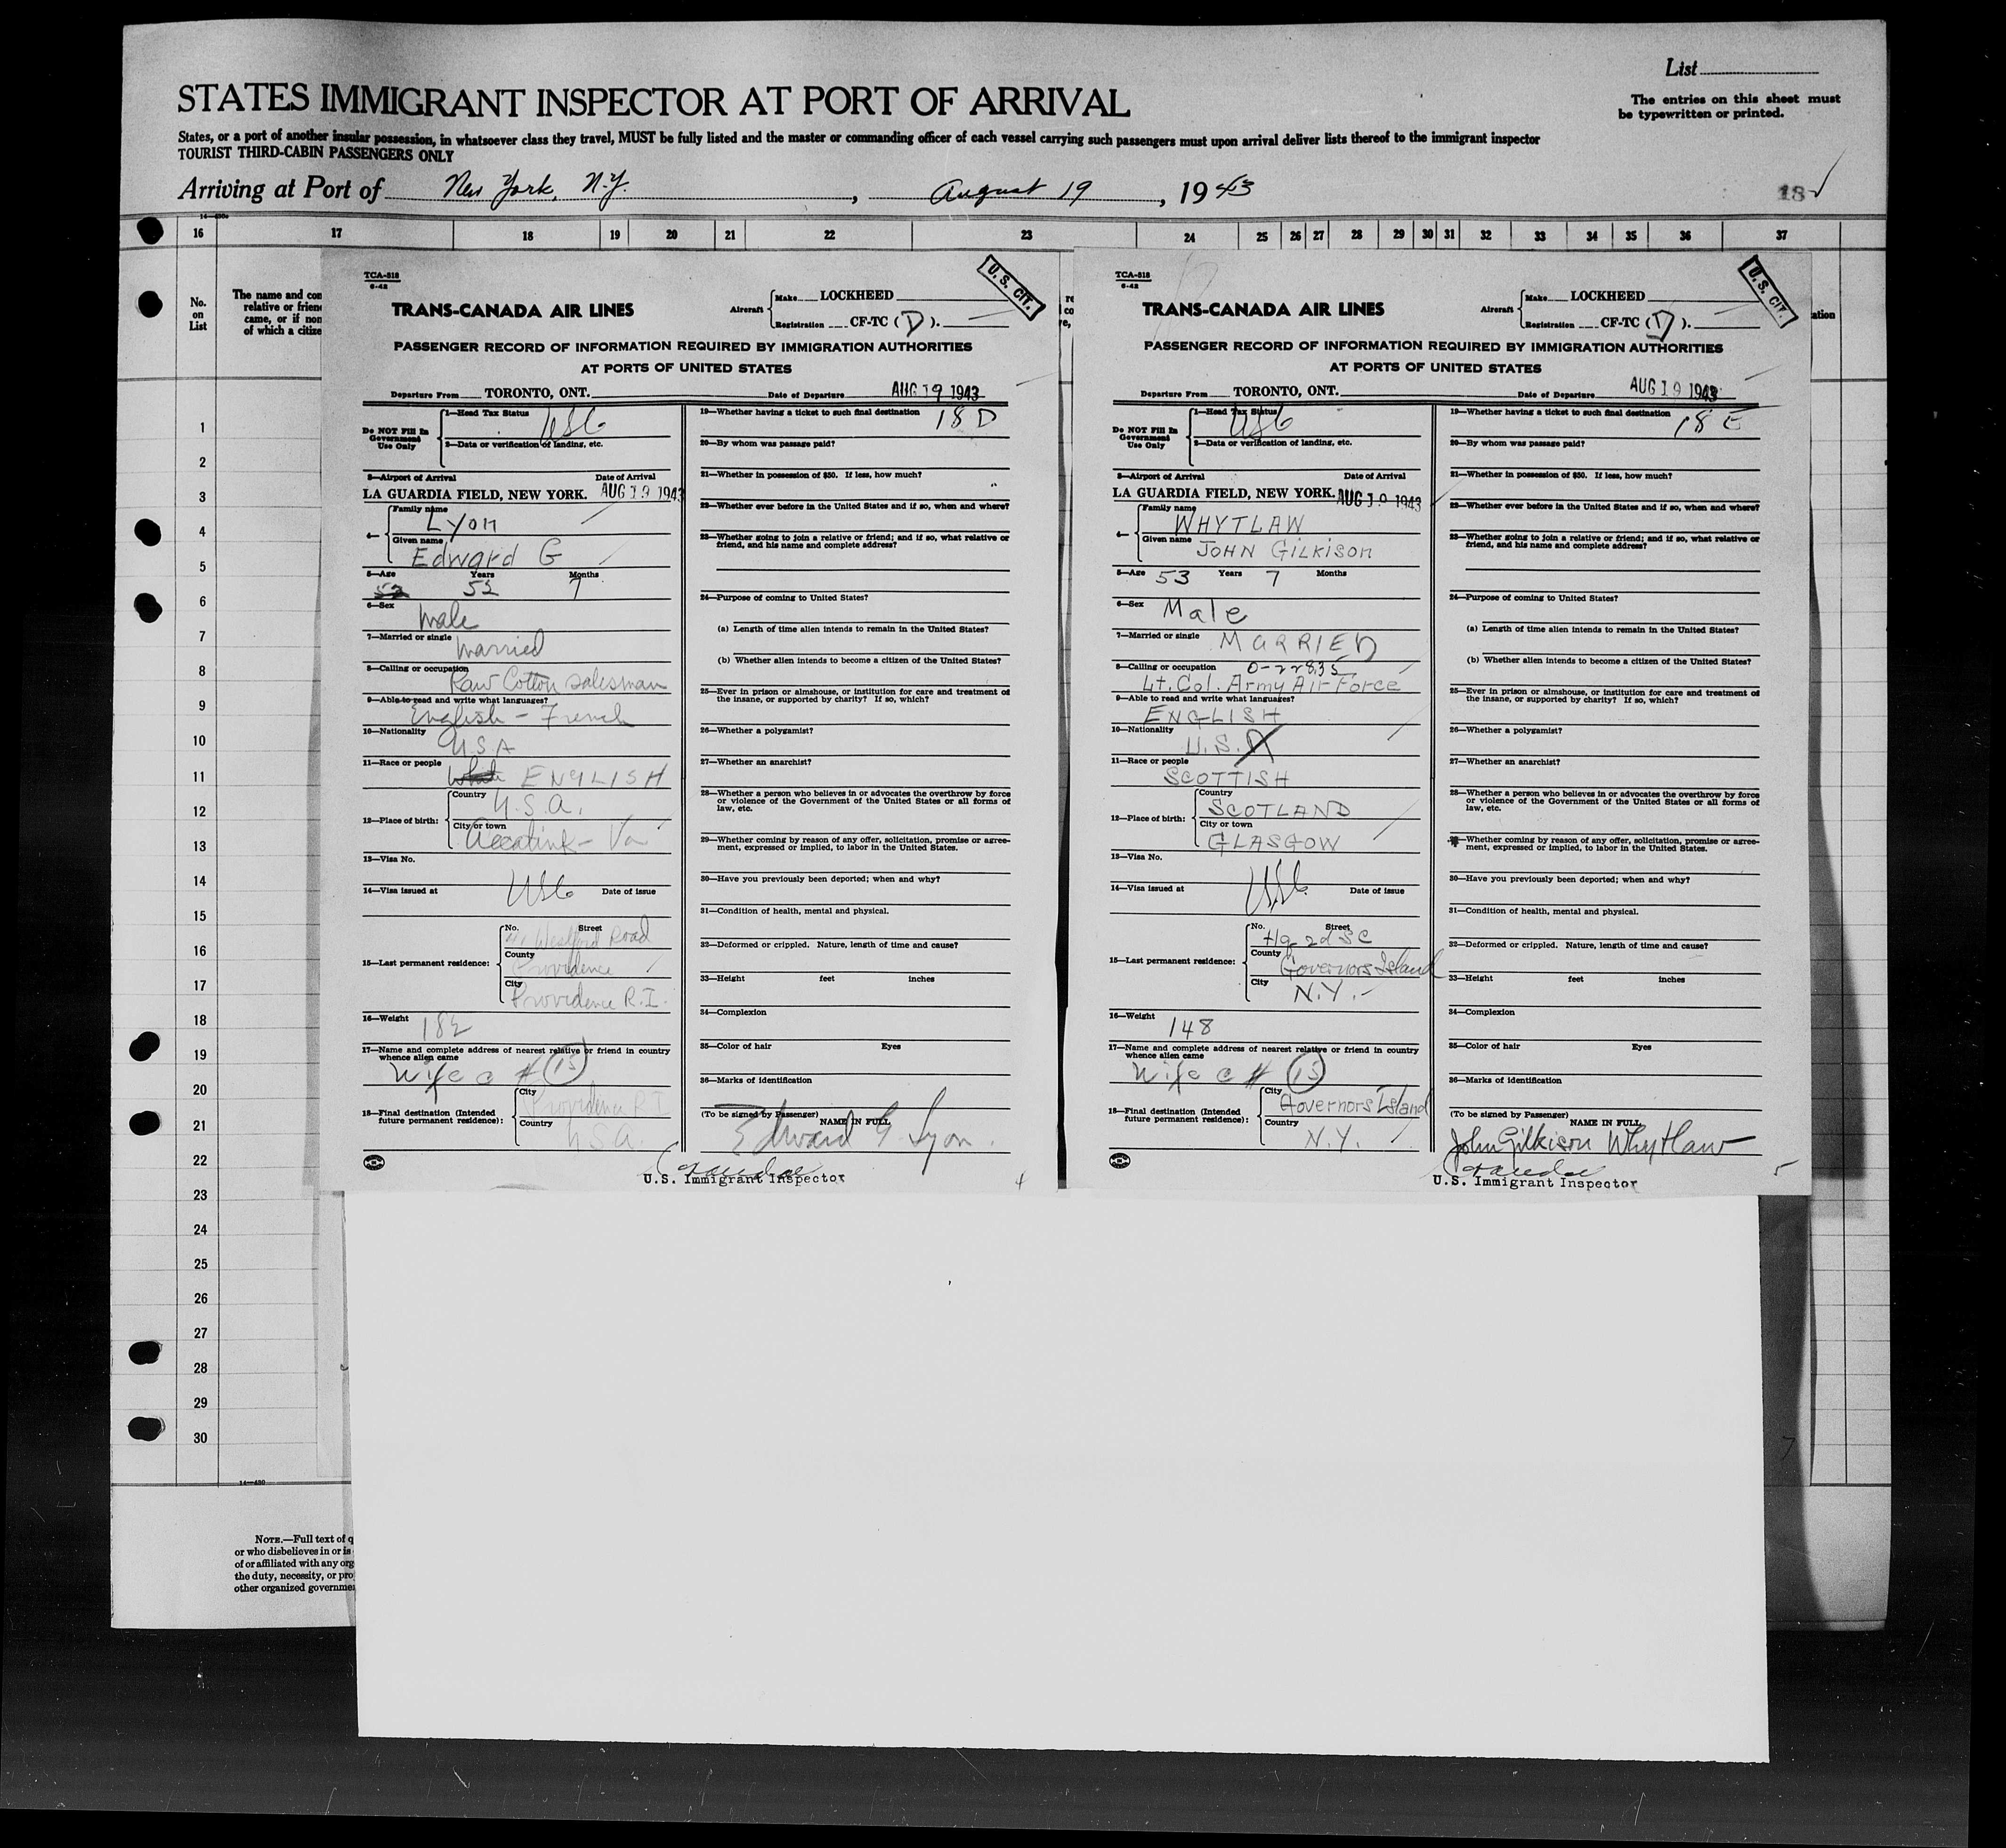 List
STATES IMMIGRANT INSPECTOR AT PORT OF ARRIVAL
The entries on this sheet must
be typewritten or printed.
States, or a port of another insular possession, in whatsoever class they travel, MUST be fully listed and the master or commanding officer of each vessel carrying such passengers must upon arrival deliver lists thereof to the immigrant inspector
TOURIST THIRD-CABIN PASSENGERS ONLY
Arriving at Port of New York, N.Y., August 19, 1943
18
14-480a
16 17 18 19 20 21 22 23 24 25 26 27 28 29 30 31 32 33 34 35 36 37
No.
on
List
The name and con
relative or friend
came, or if non
of which a citize
1
2
3
4
5
6
7
8
9
10
11
12
13
14
15
16
17
18
19
20
21
22
23
24
25
26
27
28
29
30
14-480
NOTE.—Full text of q
or who disbelieves in or is
of or affiliated with any org
the duty, necessity, or pro
other organized governme
TCA-818
6-42
U. S. CIT.
TRANS-CANADA AIR LINES
Aircraft
Make LOCKHEED
Registration CF-TC (D).
PASSENGER RECORD OF INFORMATION REQUIRED BY IMMIGRATION AUTHORITIES
AT PORTS OF UNITED STATES
Departure From TORONTO, ONT. Date of Departure AUG 19 1943
Do NOT Fill In
Government
Use Only
1—Head Tax Status USC
2—Data or verification of landing, etc.
3—Airport of Arrival Date of Arrival
LA GUARDIA FIELD, NEW YORK. AUG 19 1943
4—
Family name
Lyon
Given name
Edward G
5—Age Years Months
52 52 7
6—Sex
Male
7—Married or single
Married
8—Calling or occupation
Raw Cotton Salesman
9—Able to read and write what languages?
English - French
10—Nationality
U.S.A
11—Race or people
White ENGLISH
12—Place of birth:
Country
U.S.A.
City or town
Accotink - Va
13—Visa No.
14—Visa issued at USC Date of issue
15—Last permanent residence:
No. Street
Road
County
Providence
City
Providence R.I.
16—Weight
17—Name and complete address of nearest relative or friend in country
whence alien came
Wife c # 15
18—Final destination (Intended
future permanent residence):
City
Providence R.I
Country
U.S.A.
19—Whether having a ticket to such final destination
18 D
20—By whom was passage paid?
21—Whether in possession of $50. If less, how much?
22—Whether ever before in the United States and if so, when and where?
23—Whether going to join a relative or friend; and if so, what relative or
friend, and his name and complete address?
24—Purpose of coming to United States?
(a) Length of time alien intends to remain in the United States?
(b) Whether alien intends to become a citizen of the United States?
25—Ever in prison or almshouse, or institution for care and treatment of
the insane, or supported by charity? If so, which?
26—Whether a polygamist?
27—Whether an anarchist?
28—Whether a person who believes in or advocates the overthrow by force
or violence of the Government of the United States or all forms of
law, etc.
29—Whether coming by reason of any offer, solicitation, promise or agree-
ment, expressed or implied, to labor in the United States.
30—Have you previously been deported; when and why?
31—Condition of health, mental and physical.
32—Deformed or crippled. Nature, length of time and cause?
33—Height feet inches
34—Complexion
35—Color of hair Eyes
36—Marks of identification
(To be signed by Passenger)
NAME IN FULL
Edward G. Lyon.
U.S. Immigrant Inspector
4
TCA-818
6-42
U. S. CIT.
TRANS-CANADA AIR LINES
Aircraft
Make LOCKHEED
Registration CF-TC (D).
PASSENGER RECORD OF INFORMATION REQUIRED BY IMMIGRATION AUTHORITIES
AT PORTS OF UNITED STATES
Departure From TORONTO, ONT. Date of Departure AUG 19 1943
Do NOT Fill In
Government
Use Only
1—Head Tax Status
USC
2—Data or verification of landing, etc.
3—Airport of Arrival Date of Arrival
LA GUARDIA FIELD, NEW YORK. AUG 19 1943
4—
Family name
WHYTLAW
Given name
JOHN GILKISON
5—Age 53 Years 7 Months
6—Sex
Male
7—Married or single
MARRIED
8—Calling or occupation 0-22835
Lt. Col. Army Air Force
9—Able to read and write what languages?
ENGLISH
10—Nationality
U.S.A
11—Race or people
SCOTTISH
12—Place of birth:
Country
SCOTLAND
City or town
GLASGOW
13—Visa No.
14—Visa issued at USC Date of issue
15—Last permanent residence:
No. Street
Hq 2d SC
County
Governors Island
City
N.Y.-
16—Weight
148
17—Name and complete address of nearest relative or friend in country
whence alien came
Wife c # 15
18—Final destination (Intended
future permanent residence):
City
Governors Island
Country
N.Y.
19—Whether having a ticket to such final destination
18 E
20—By whom was passage paid?
21—Whether in possession of $50. If less, how much?
22—Whether ever before in the United States and if so, when and where?
23—Whether going to join a relative or friend; and if so, what relative or
friend, and his name and complete address?
24—Purpose of coming to United States?
(a) Length of time alien intends to remain in the United States?
(b) Whether alien intends to become a citizen of the United States?
25—Ever in prison or almshouse, or institution for care and treatment of
the insane, or supported by charity? If so, which?
26—Whether a polygamist?
27—Whether an anarchist?
28—Whether a person who believes in or advocates the overthrow by force
or violence of the Government of the United States or all forms of
law, etc.
29—Whether coming by reason of any offer, solicitation, promise or agree-
ment, expressed or implied, to labor in the United States.
30—Have you previously been deported; when and why?
31—Condition of health, mental and physical.
32—Deformed or crippled. Nature, length of time and cause?
33—Height feet inches
34—Complexion
35—Color of hair Eyes
36—Marks of identification
(To be signed by Passenger)
NAME IN FULL
John Gilkison Whytlaw
U.S. Immigrant Inspector
5